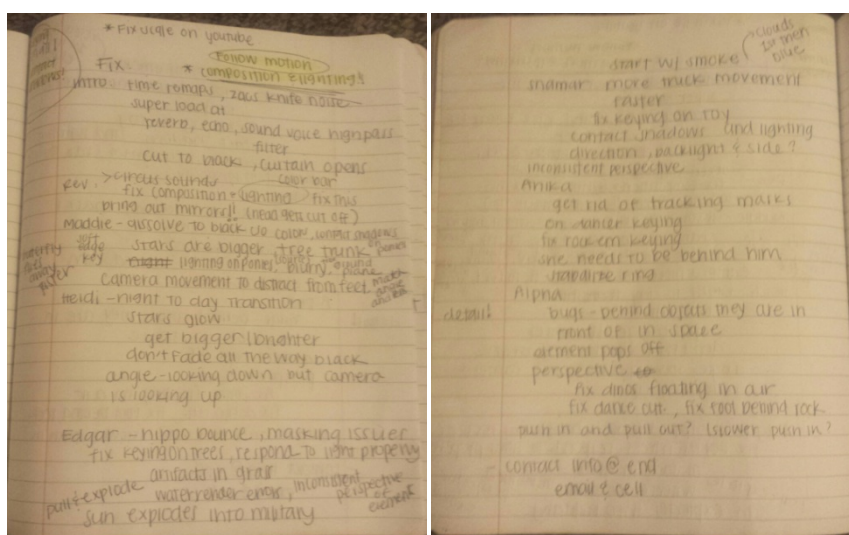 * Fix ucle on youtube
Follow motion
Fix: * composition & lighting!!
intro: time remaps, zoos knife noise
super load at
reverb, echo, sound voice highpass
filter
cut to black, curtain opens
Rev. > circus sounds color bar
fix composition + lighting fix this
bring out mirrors!! (head gets cut off)
Maddie - dissolve to black
stars are bigger tree trunk
soft
edge
key
lighting on ponies, blurry, ground
plane
camera movement to distract from feet
Heidi - night to day transition
stars glow
get bigger/brighter
don't fade all the way black
angle - looking down but camera
is looking up
Edgar - hippo bounce, masking issues
fix keying on trees, respond to light properly
artifacts in grass
pull & explode water render errors, inconsistent
perspective
of
element
sun explodes into military
clouds
1st then
blue
start w/ smoke
more truck movement
faster
fix keying on toy
contact shadows and lighting
direction, backlight & side?
inconsistent perspective
Anika
get rid of tracking marks
keying
fix rockem keying
she needs to be behind him
stabilize ring
Alpha
detail bugs - behind objects they are in
front of in space
element pops off
perspective
fix dinos floating in air
fix dance cut, fix foot behind rock
push in and pull out? (slower push in?
- contact info @ end
email & cell